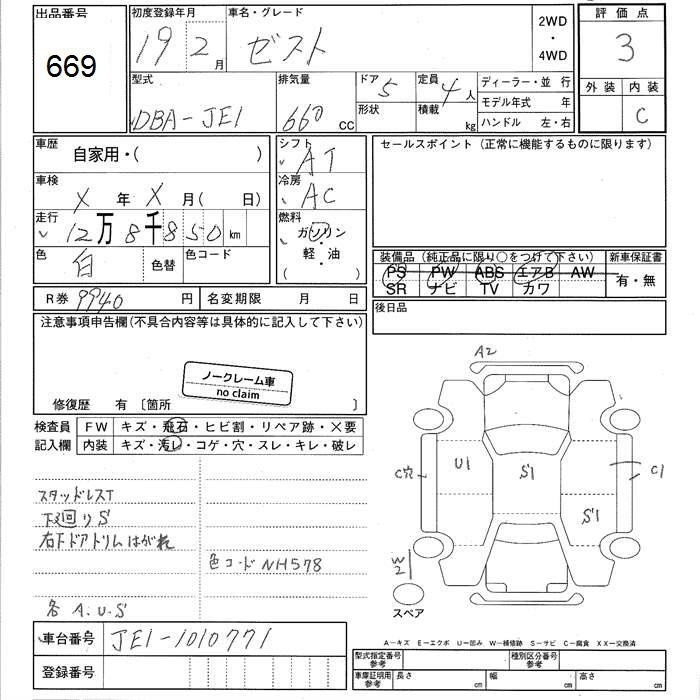 出品番号 初度登録年月 車名・グレード 2WD ・ 4WD 評価点
669 19年2月 ゼスト 3
型式 排気量 ドア 5 定員 4人 ディーラー・並行 外装 内装
DBA-JE1 660 CC 形状 積載 kg モデル年式 年 C
ハンドル 左・右
車歴 自家用・( ) シフト AT セールスポイント(正常に機能するものに限ります)
車検 X年X月(日) 冷房 AC
走行 12万8千850km 燃料 ガソリン・軽・油 ( )
色 白 色替 色コード 装備品(純正品に限り○をつけて下さい) 新車保証書
PS PW ABS エアB AW 有・無
SR ナビ TV カワ
R券 9940円 名変期限 月 日 後日品
注意事項申告欄(不具合内容等は具体的に記入して下さい)
ノークレーム車
no claim
修復歴 有 〔箇所 〕
検査員 FW キズ・飛石・ヒビ割・リペア跡・×要
記入欄 内装 キズ・汚レ・コゲ・穴・スレ・キレ・破レ
A2
C穴 U1 S1 C1
S1
W2
スペア
スタッドレスT
下廻りS
右下ドアトリムはがれ
色コードNH578
各A.U.S
A―キズ E―エクボ U―凹み W―補修跡 S―サビ C―腐食 XX―交換済
車台番号 JE1-1010771
登録番号
型式指定番号 参考 種別区分番号 参考
車庫証明用 参考 長さ cm 幅 cm 高さ cm